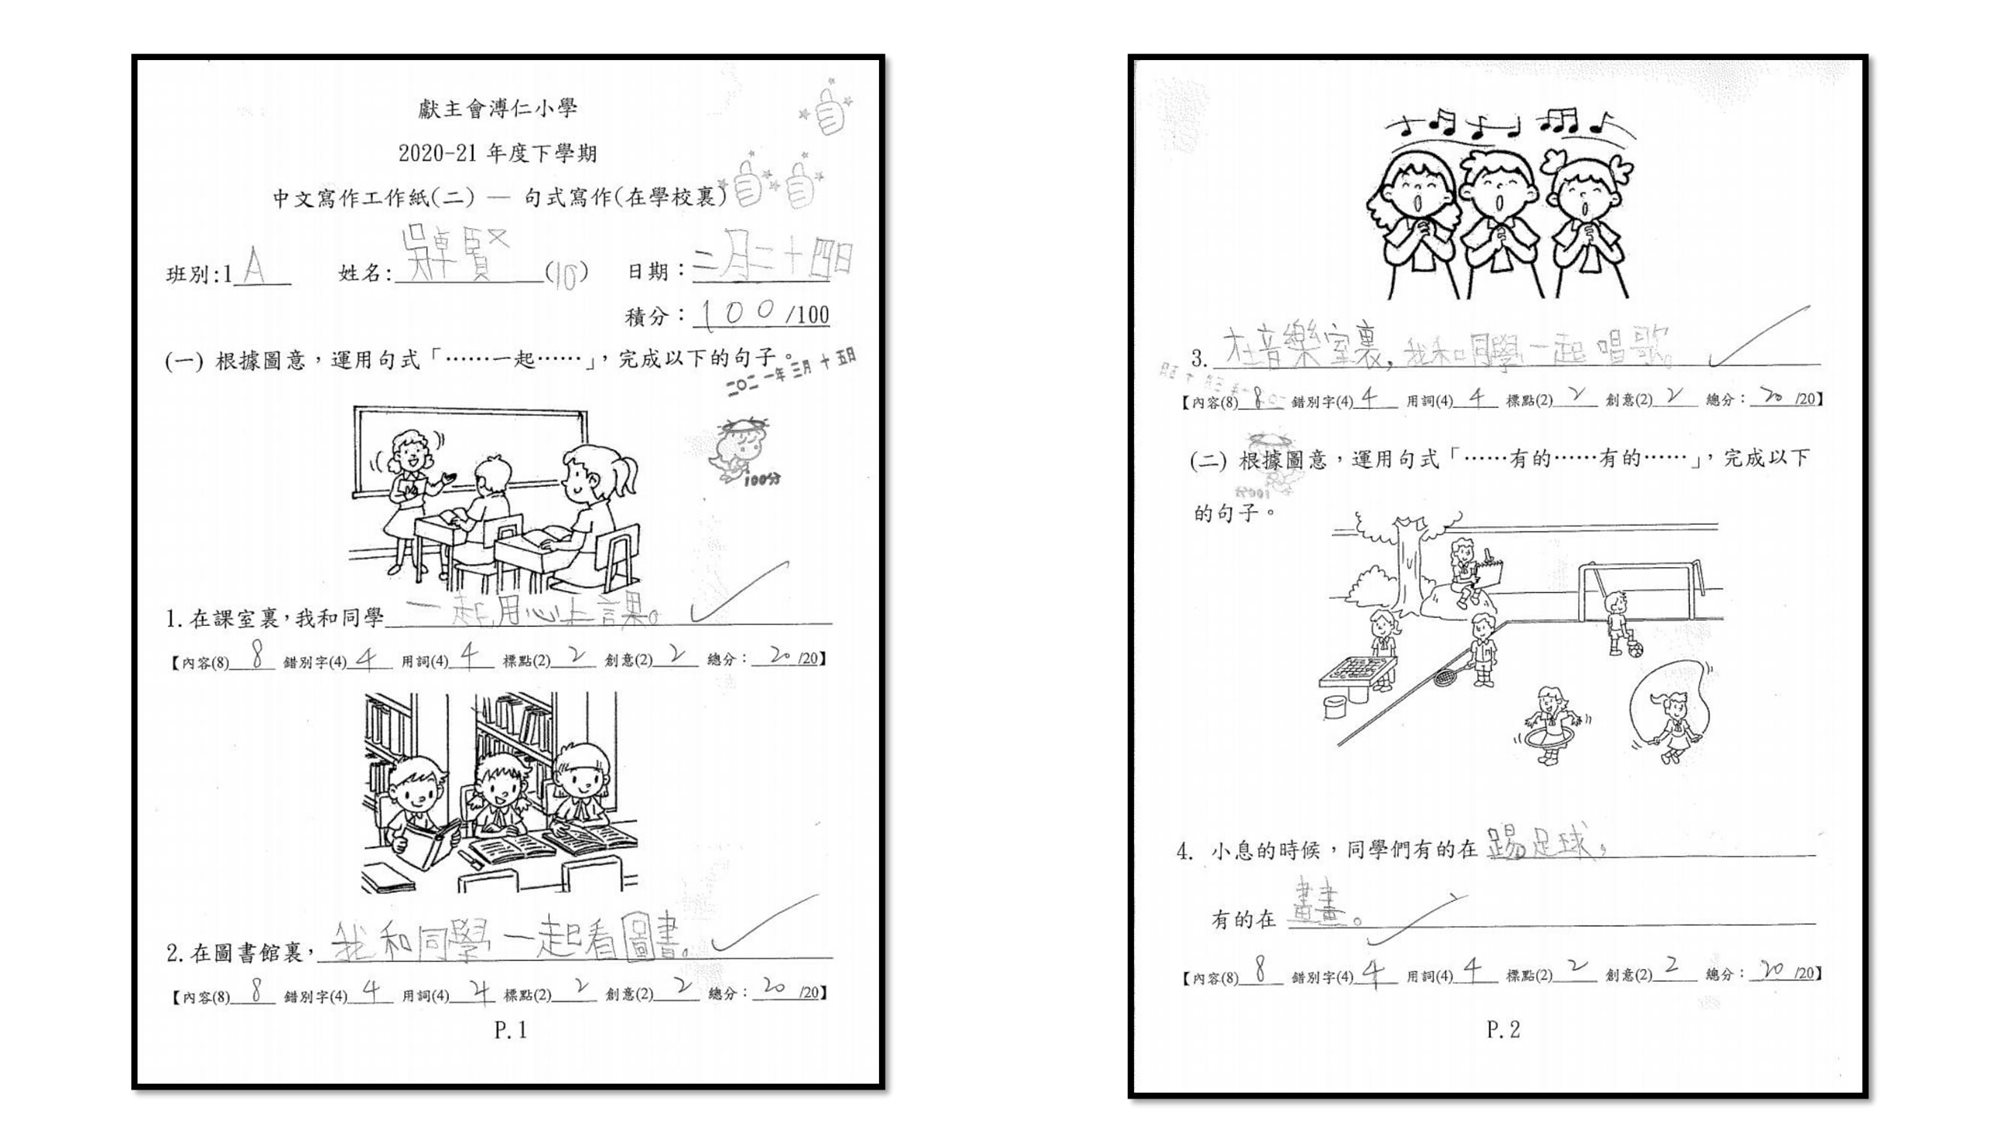 獻主會溥仁小學
2020-21 年度下學期
中文寫作工作紙(二) — 句式寫作(在學校裏)
班別:1 A 姓名: 吳卓賢 (10) 日期：二月二十四日
積分：100 /100
(一) 根據圖意，運用句式「……一起……」，完成以下的句子。
二〇二一年 三月 十五日
100分
1.在課室裏，我和同學一起用心上課。
【內容(8) 8 錯別字(4) 4 用詞(4) 4 標點(2) 2 創意(2) 2 總分： 20 /20】
2.在圖書館裏，我和同學一起看圖書。
【內容(8) 8 錯別字(4) 4 用詞(4) 4 標點(2) 2 創意(2) 2 總分： 20 /20】
P.1
3. 在音樂室裏，我和同學一起唱歌。
【內容(8) 8 錯別字(4) 4 用詞(4) 4 標點(2) 2 創意(2) 2 總分： 20 /20】
(二) 根據圖意，運用句式「……有的……有的……」，完成以下
的句子。
4. 小息的時候，同學們有的在 踢足球，
有的在 畫畫。
【內容(8) 8 錯別字(4) 4 用詞(4) 4 標點(2) 2 創意(2) 2 總分： 20 /20】
P.2